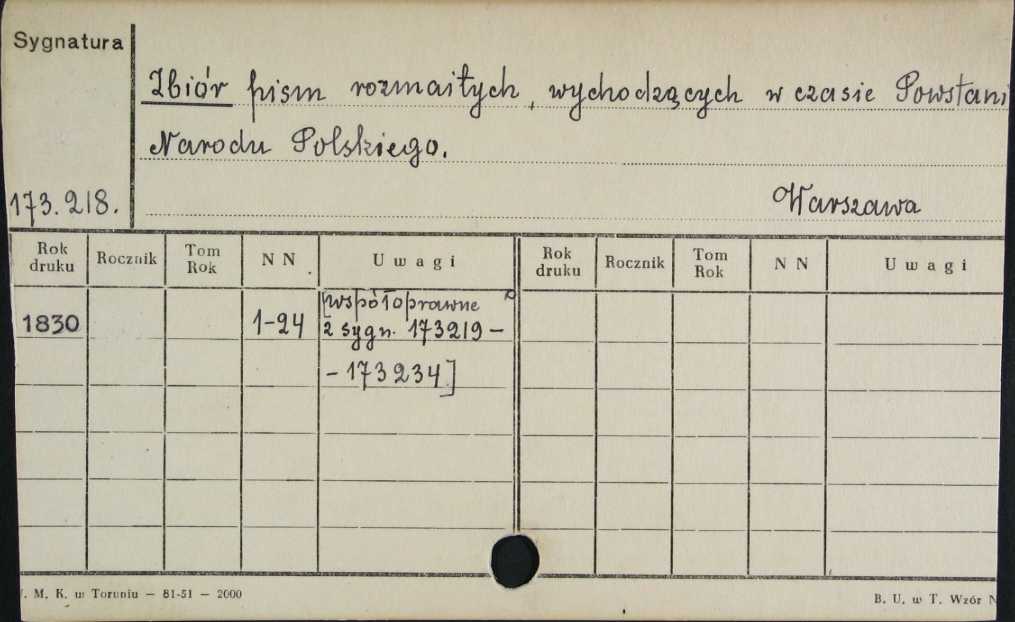 Sygnatura
Zbiór pism rozmaitych, wychodzących w czasie Powstani
Narodu Polskiego.
173.218.
Warszawa
Rok druku Rocznik Tom Rok N N Uwagi Rok druku Rocznik Tom Rok N N Uwagi
[współoprawne
1830 1-24 z sygn. 173219 –
– 173234]
. M. K. w Toruniu — 81-51 — 2000
B. U. w T. Wzór N